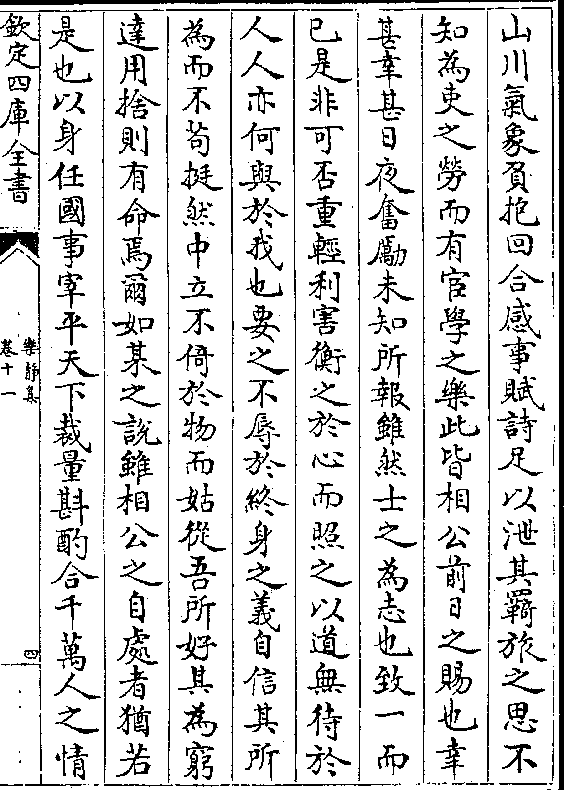 山川氣象負抱回合感事賦詩足以泄其羇旅之思不
知為吏之勞而有宦學之樂此皆相公前日之賜也幸
甚幸甚日夜奮勵未知所報雖然士之為志也致一而
已是非可否重輕利害衡之於心而照之以道無待於
人人亦何與於我也要之不辱於終身之義自信其所
為而不苟挺然中立不倚於物而姑從吾所好其為窮
達用捨則有命焉爾如某之說雖相公之自處者猶若
是也以身任國事宰平天下裁量斟酌合千萬人之情
欽定四庫全書
樂靜集
卷十一
四